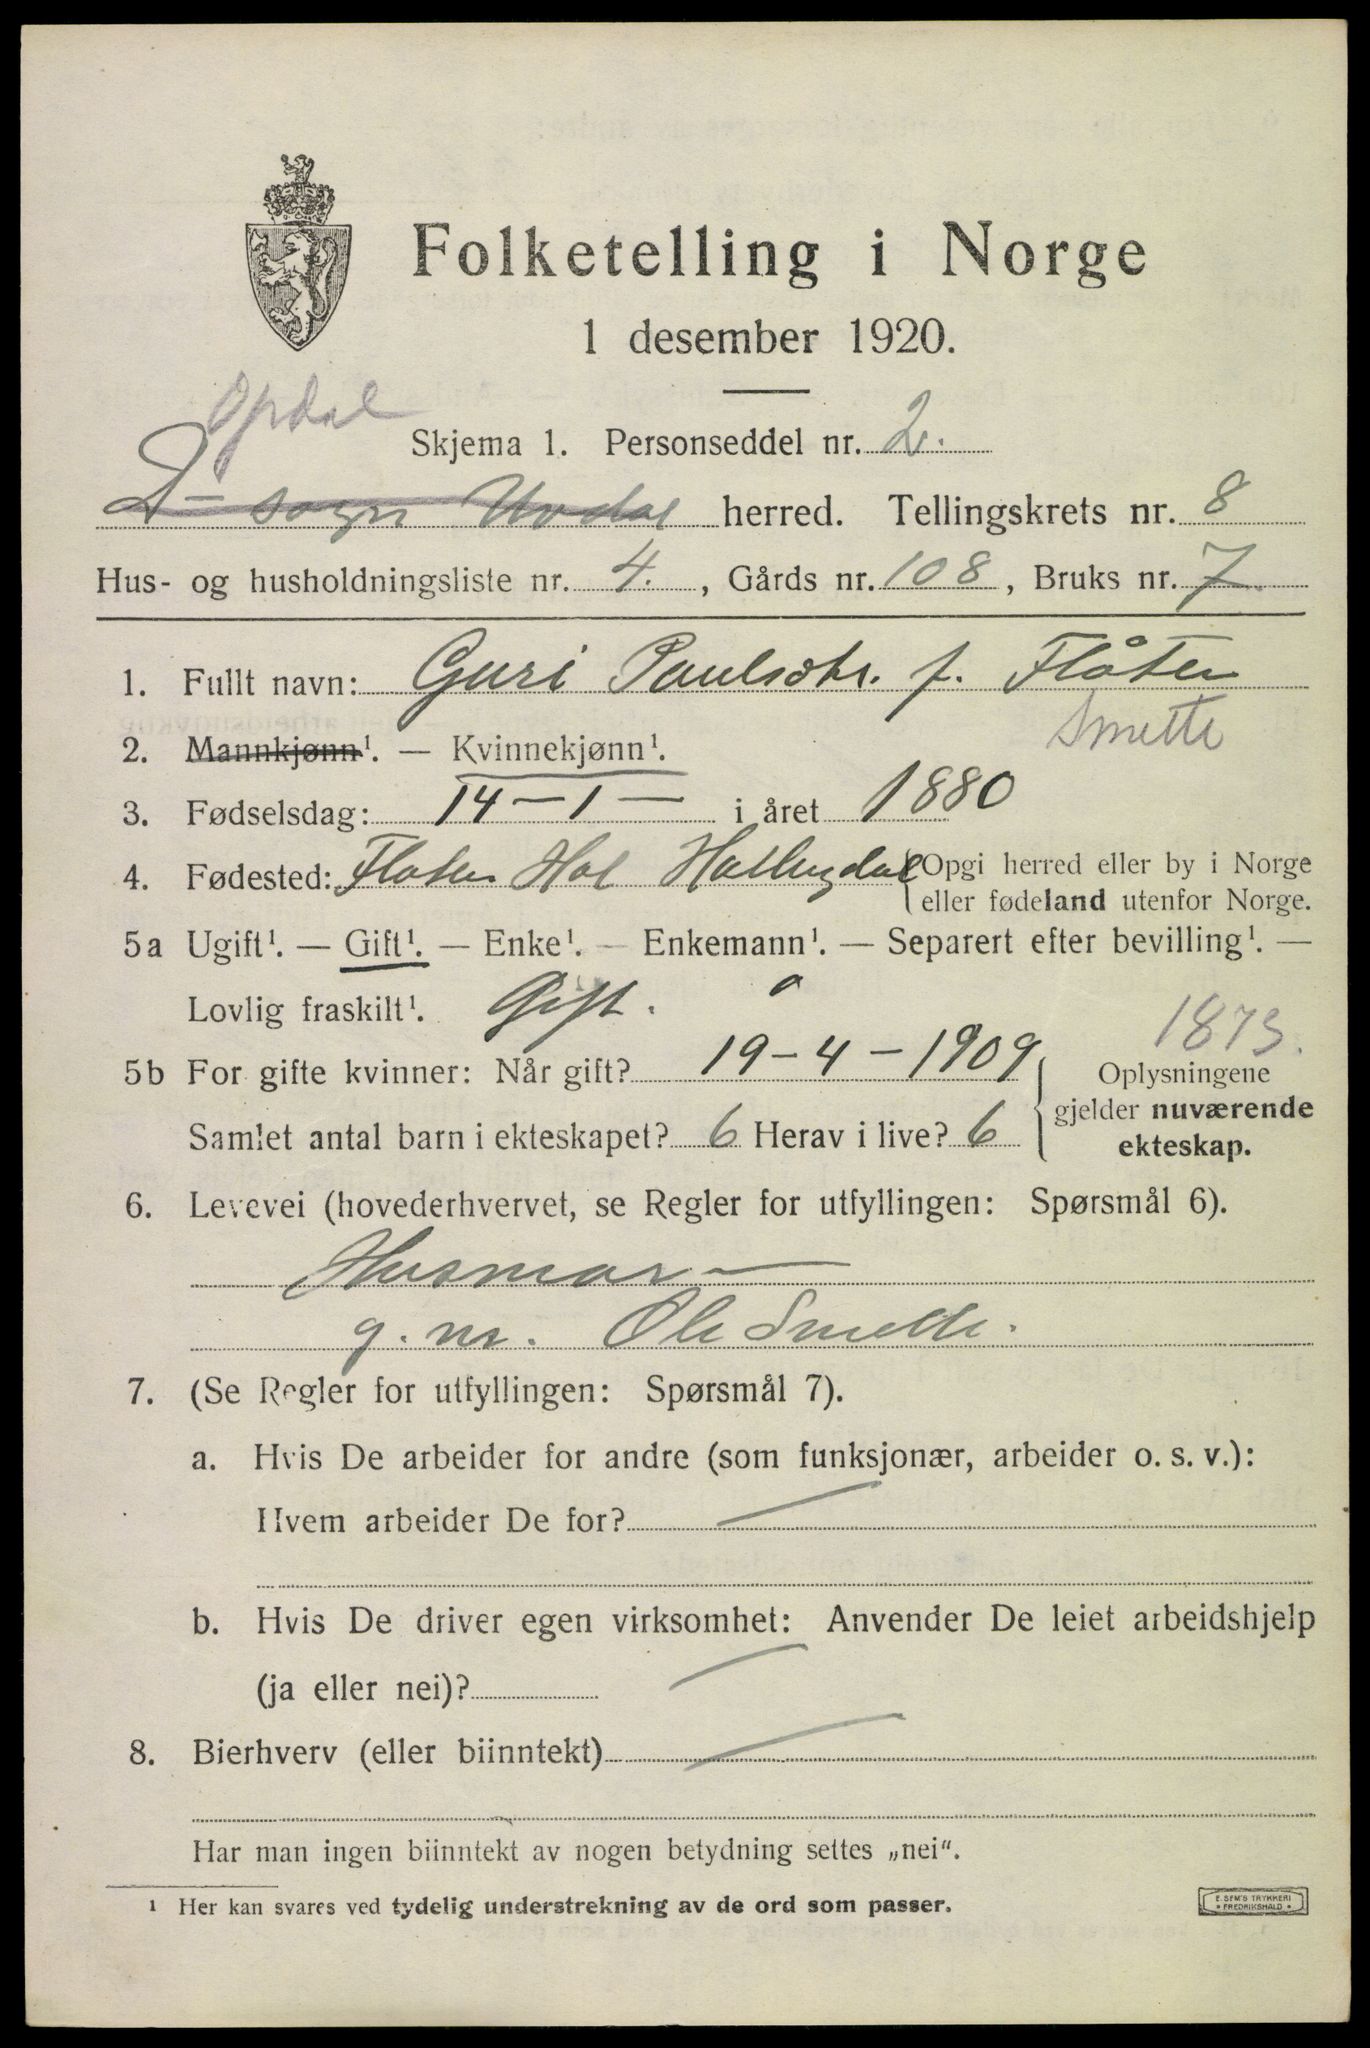 Folketelling i Norge
1 desember 1920.
Opdal
Skjema 1. Personseddel nr. 2.
sogn Uvdal herred. Tellingskrets nr. 8
Hus- og husholdningsliste nr. 4., Gårds nr. 108, Bruks nr. 7
1. Fullt navn: Guri Paulsdtr. f. Flåten
Smette
2. Mannkjønn¹. — Kvinnekjønn¹.
3. Fødselsdag: 14 — 1 — i året 1880
4. Fødested: Flaten Hol Hallingdal {Opgi herred eller by i Norge
eller fødeland utenfor Norge.
5a Ugift¹. — Gift¹. — Enke¹. — Enkemann¹. — Separert efter bevilling¹. —
Lovlig fraskilt¹. Gift.
1873.
5b For gifte kvinner: Når gift? 19 – 4 – 1909
Oplysningene
gjelder nuværende
ekteskap.
Samlet antal barn i ekteskapet? 6 Herav i live? 6
6. Levevei (hovederhvervet, se Regler for utfyllingen: Spørsmål 6).
Husmor —
g. m. Ole Smette.
7. (Se Regler for utfyllingen: Spørsmål 7).
a. Hvis De arbeider for andre (som funksjonær, arbeider o. s. v.):
Hvem arbeider De for? —
b. Hvis De driver egen virksomhet: Anvender De leiet arbeidshjelp
(ja eller nei)? —
8. Bierhverv (eller biinntekt) —
Har man ingen biinntekt av nogen betydning settes „nei“.
¹ Her kan svares ved tydelig understrekning av de ord som passer.
E. SEM'S TRYKKERI
• FREDRIKSHALD •